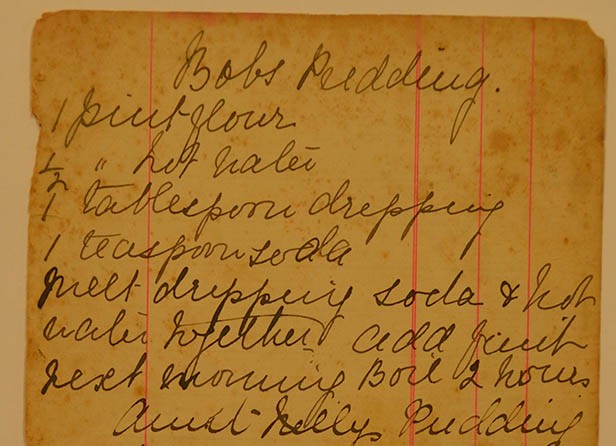 Bobs Pudding.
1 pint flour
1/2 " hot water
1 tablespoon dripping
1 teaspoon soda
melt dripping soda & hot
water together add fruit
next morning Boil 2 hours
Aunt Nellys Pudding